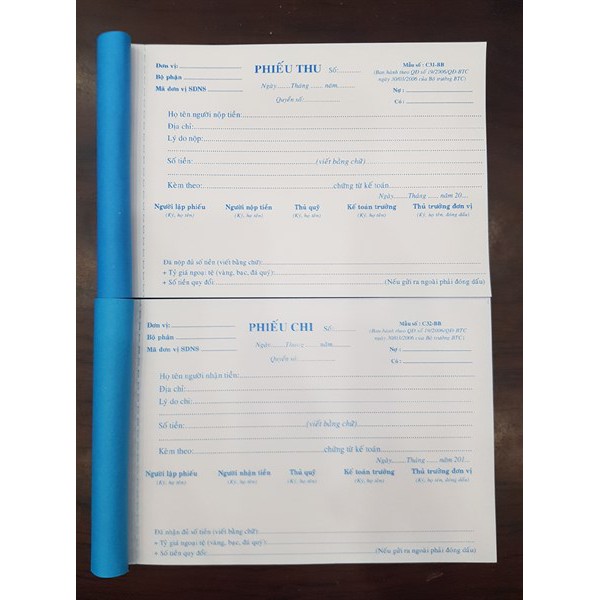 Đơn vị:
PHIẾU THU Số:
Mẫu số : C31-BB
Bộ phận
(Ban hành theo QĐ số 19/2006/QĐ-BTC
Mã đơn vị SDNS
Ngày........Tháng ....... năm.........
ngày 30/03/2006 của Bộ trưởng BTC)
Quyển số:
Nợ :
Có :
Họ tên người nộp tiền:
Địa chỉ:
Lý do nộp:
Số tiền: (viết bằng chữ)
Kèm theo: chứng từ kế toán
Ngày.......Tháng ....... năm 20....
Người lập phiếu Người nộp tiền Thủ quỹ Kế toán trưởng Thủ trưởng đơn vị
(Ký, họ tên) (Ký, họ tên) (Ký, họ tên) (Ký, họ tên) (Ký, họ tên, đóng dấu)
Đã nộp đủ số tiền (viết bằng chữ):
+ Tỷ giá ngoại tệ (vàng, bạc, đá quý):
+ Số tiền quy đổi: (Nếu gửi ra ngoài phải đóng dấu)
Đơn vị:
PHIẾU CHI Số:
Mẫu số : C32-BB
Bộ phận
(Ban hành theo QĐ số 19/2006/QĐ-BTC
Mã đơn vị SDNS
Ngày........Tháng ....... năm.........
ngày 30/03/2006 của Bộ trưởng BTC)
Quyển số:
Nợ :
Có :
Họ tên người nhận tiền:
Địa chỉ:
Lý do chi:
Số tiền: (viết bằng chữ)
Kèm theo: chứng từ kế toán
Ngày.......Tháng ....... năm 201...
Người lập phiếu Người nhận tiền Thủ quỹ Kế toán trưởng Thủ trưởng đơn vị
(Ký, họ tên) (Ký, họ tên) (Ký, họ tên) (Ký, họ tên) (Ký, họ tên, đóng dấu)
Đã nhận đủ số tiền (viết bằng chữ):
+ Tỷ giá ngoại tệ (vàng, bạc, đá quý):
+ Số tiền quy đổi: (Nếu gửi ra ngoài phải đóng dấu)